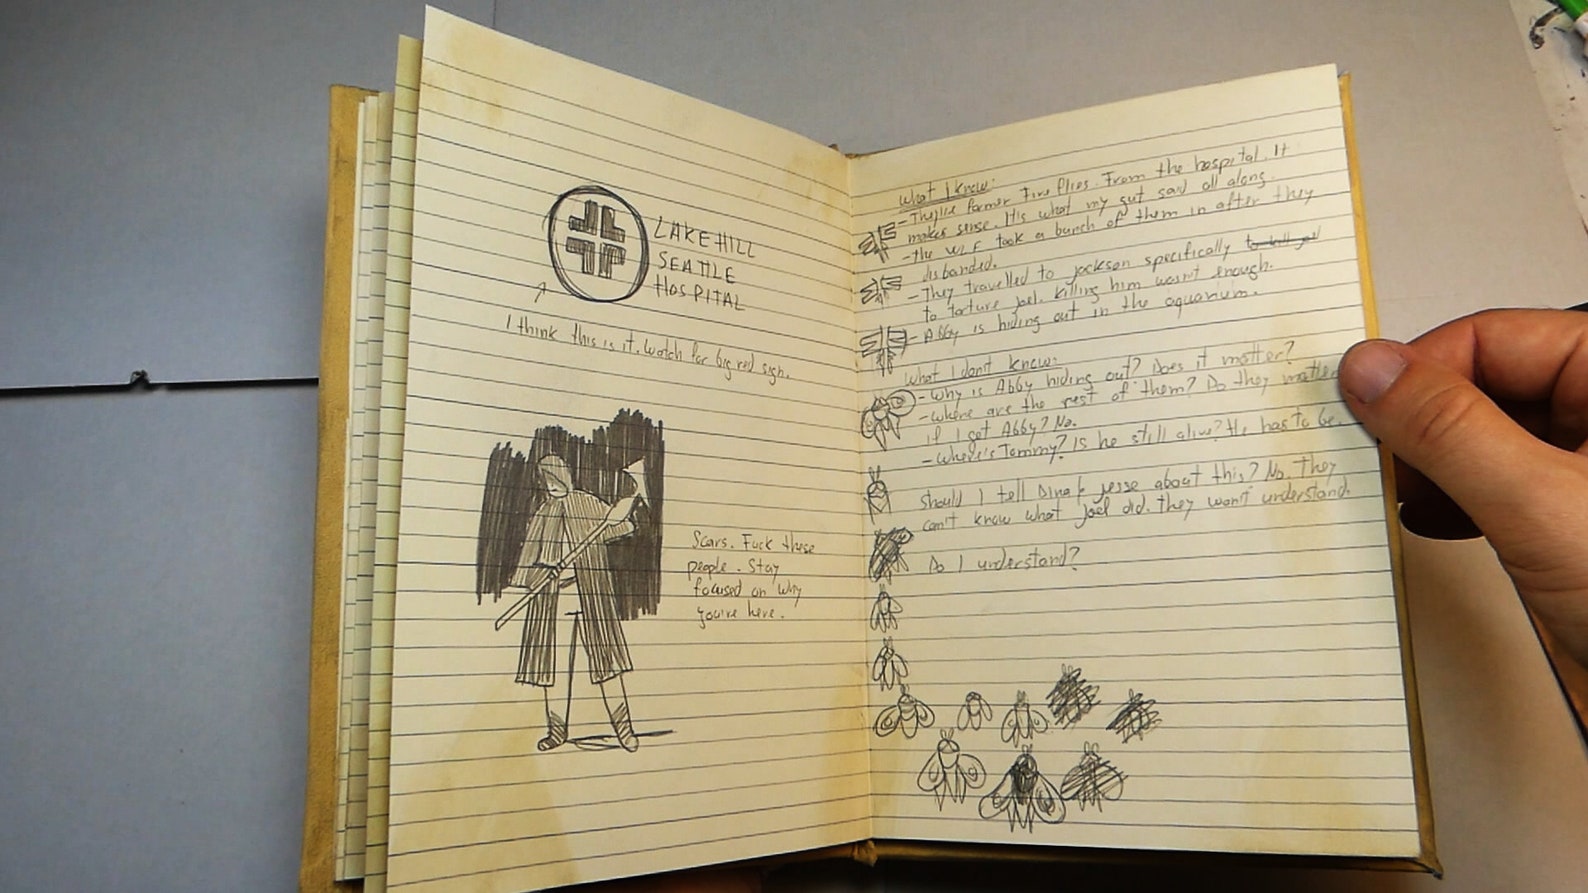 LAKEHILL
SEATTLE
HOSPITAL
I think this is it. Watch for big red sign.
Scars. Fuck these
people. Stay
focused on why
you're here.
What I know:
- They're former Fireflies. From the hospital. It
makes sense. It's what my gut said all along.
- the WLF took a bunch of them in after they
disbanded.
- They travelled to Jackson specifically to kill Joel
to torture Joel. Killing him wasn't enough.
- Abby is hiding out in the aquarium.
What I don't know:
- Why is Abby hiding out? Does it matter?
- Where are the rest of them? Do they matter
if I get Abby? No.
- Where's Tommy? Is he still alive? He has to be.
Should I tell Dina & Jesse about this? No. They
can't know what Joel did. They won't understand.
Do I understand?